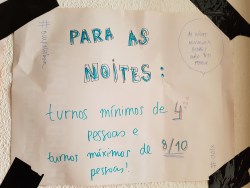 PARA AS
NOITES:
turnos mínimos de 4
pessoas e
turnos máximos de 8/10
pessoas!